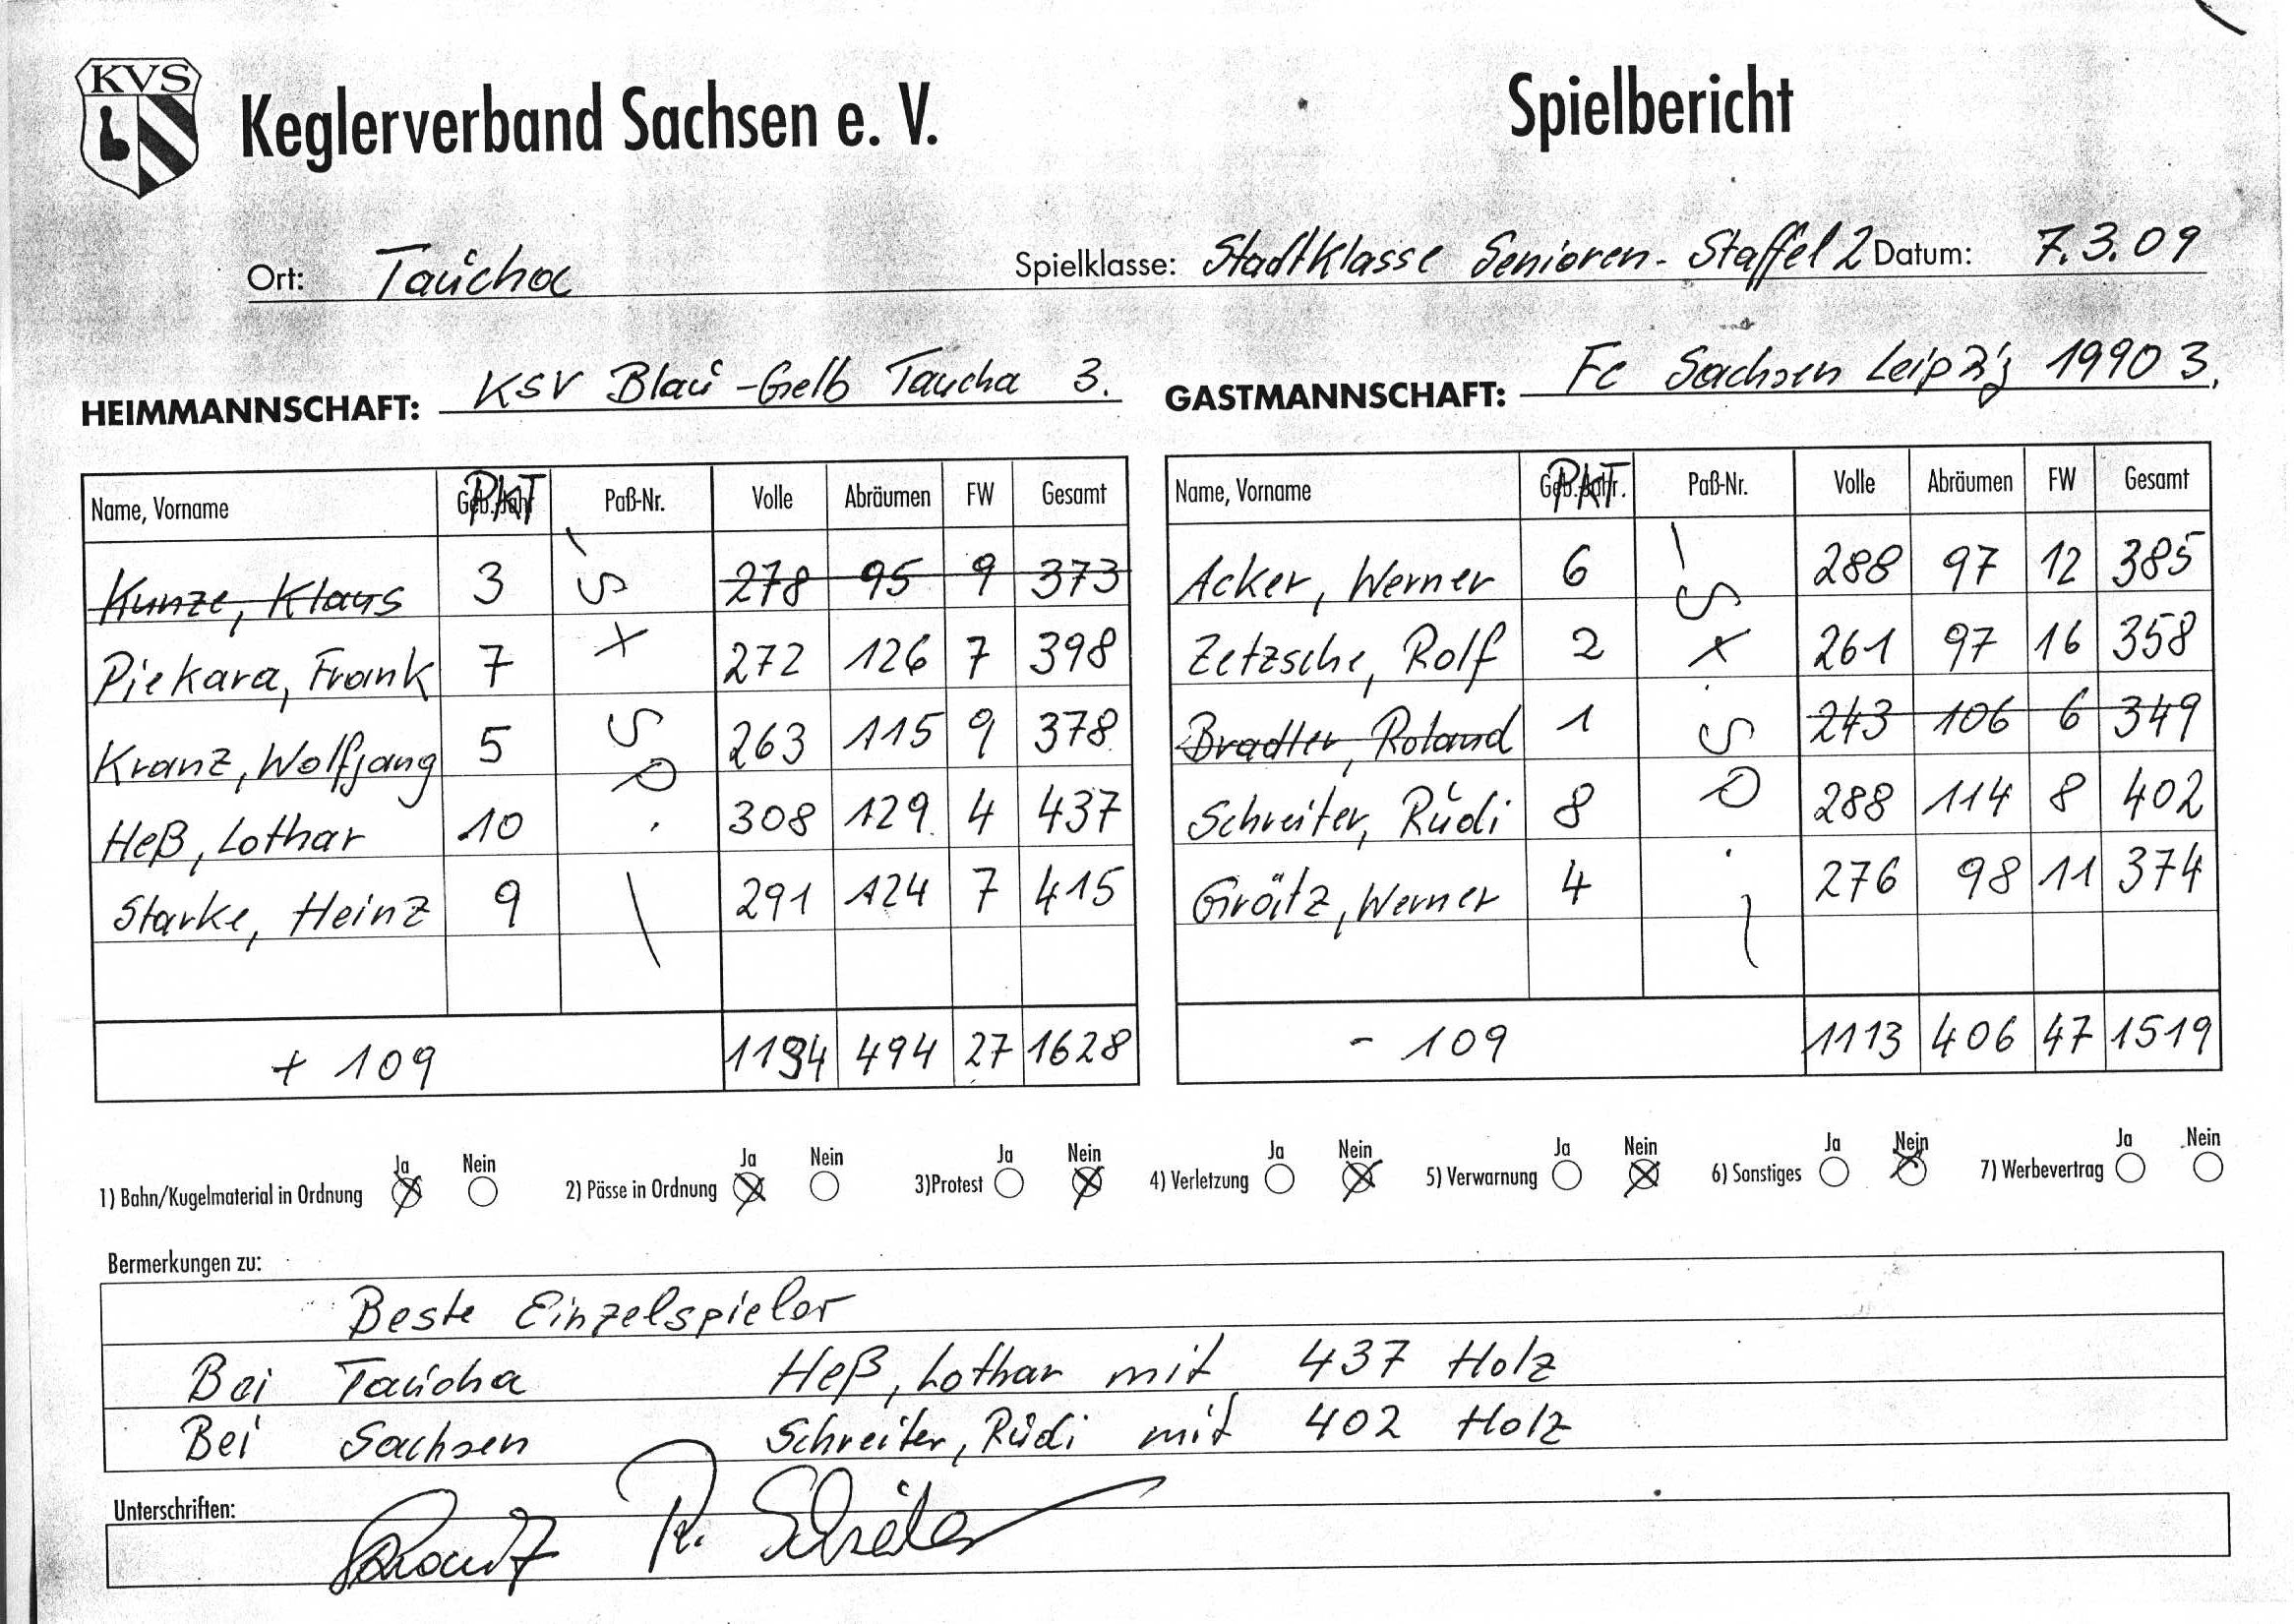 KVS
Keglerverband Sachsen e. V.
Spielbericht
Ort: Taucha Spielklasse: Stadtklasse Senioren - Staffel 2 Datum: 7.3.09
HEIMMANNSCHAFT: KSV Blau-Gelb Taucha 3. GASTMANNSCHAFT: Fc Sachsen Leipzig 1990 3.
Name, Vorname PKT Paß-Nr. Volle Abräumen FW Gesamt
Kunze, Klaus 3 278 95 9 373
Piekara, Frank 7 272 126 7 398
Kranz, Wolfgang 5 263 115 9 378
Heß, Lothar 10 308 129 4 437
Starke, Heinz 9 291 124 7 415
+ 109 1134 494 27 1628
Name, Vorname PKT Paß-Nr. Volle Abräumen FW Gesamt
Acker, Werner 6 288 97 12 385
Zetzsche, Rolf 2 261 97 16 358
Bradler, Roland 1 243 106 6 349
Schreiter, Rudi 8 288 114 8 402
Grätz, Werner 4 276 98 11 374
- 109 1113 406 47 1519
1) Bahn/Kugelmaterial in Ordnung Ja Nein 2) Pässe in Ordnung Ja Nein 3)Protest Ja Nein 4) Verletzung Ja Nein 5) Verwarnung Ja Nein 6) Sonstiges Ja Nein 7) Werbevertrag Ja Nein
Bermerkungen zu:
Beste Einzelspieler
Bei Taucha Heß, Lothar mit 437 Holz
Bei Sachsen Schreiter, Rudi mit 402 Holz
Unterschriften:
R. Schreiter